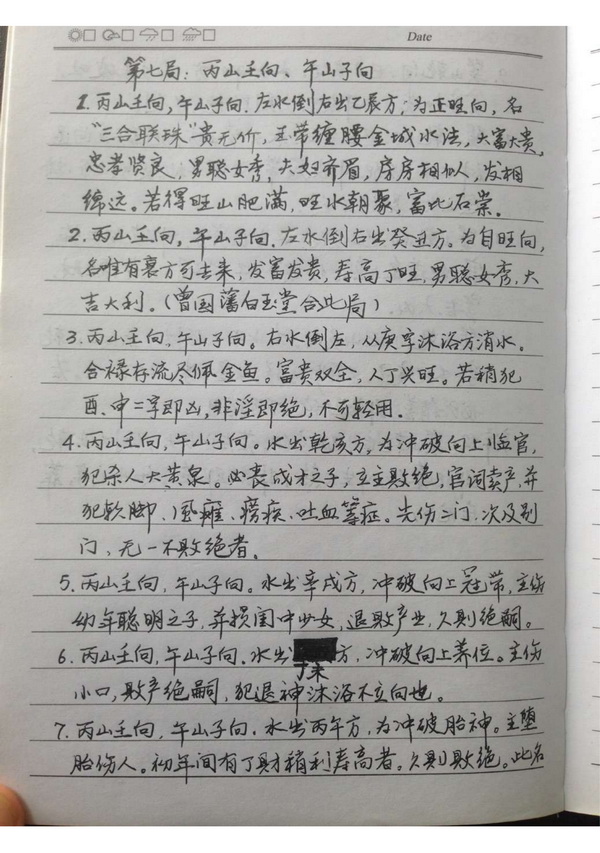 Date
第七局：丙山壬向、午山子向
1. 丙山壬向，午山子向．左水倒右出乙辰方；为正旺向，名
"三合联珠"贵无价，玉带缠腰金城水法，大富大贵，
忠孝贤良，男聪女秀，夫妇齐眉，房房相似，发福
绵远。若得旺山肥满，旺水朝聚，富比石崇。
2. 丙山壬向，午山子向．左水倒右出癸丑方。为自旺向，
名唯有衰方可去来，发富发贵，寿高丁旺，男聪女秀，大
吉大利。（曾国藩白玉堂合此局）
3. 丙山壬向，午山子向。右水倒左，从庚字沐浴方消水。
合禄存流尽佩金鱼。富贵双全，人丁兴旺。若稍犯
酉、申二字即凶，非淫即绝，不可轻用．
4. 丙山壬向，午山子向。水出乾亥方，为冲破向上临官，
犯杀人大黄泉。必丧成才之子，立主败绝，官词卖产，并
犯软脚、风瘫、痨疾、吐血等症。先伤二门、次及别
门，无一不败绝者。
5. 丙山壬向，午山子向。水出辛戌方，冲破向上冠带，主伤
幼年聪明之子，并损闺中少女，退败产业，久则绝嗣。
6. 丙山壬向，午山子向．水出丁未方，冲破向上养位。主伤
小口，败产绝嗣，犯退神沐浴不立向也。
7. 丙山壬向，午山子向．水出丙午方，为冲破胎神。主堕
胎伤人。初年间有丁财稍利寿高者。久则败绝。此名